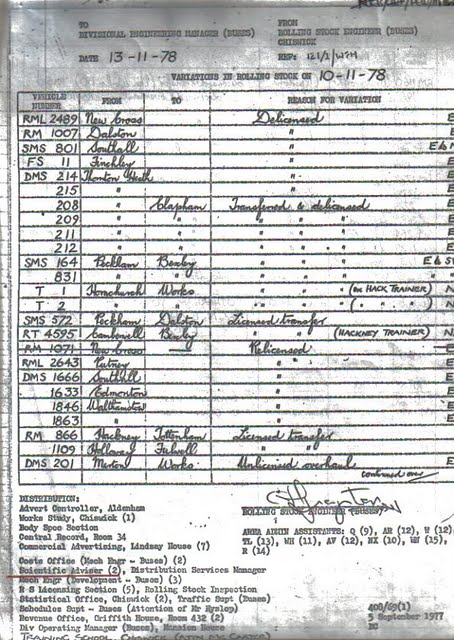 TO FROM
DIVISIONAL ENGINEERING MANAGER (BUSES) ROLLING STOCK ENGINEER (BUSES)
CHISWICK
DATE 13-11-78 REF: 121/1/WJM
VARIATIONS IN ROLLING STOCK ON 10-11-78
VEHICLE NUMBER FROM TO REASON FOR VARIATION
RML 2489 New Cross Delicensed E
RM 1007 Dalston " E
SMS 801 Southall " E & M
FS 11 Finchley " E
DMS 214 Thornton Heath " E
215 " " E
208 " Clapham Transferred & delicensed E
209 " " " " " E
211 " " " " " E
212 " " " " " E
SMS 164 Peckham Bexley " " " E & S
831 " " " " " " "
T 1 Hornchurch Works " " " (ex HACK TRAINER) N
T 2 " " " " " ( " " ) N
SMS 572 Peckham Dalston Licensed transfer E
RT 4595 Camberwell Bexley " " (HACKNEY TRAINER) N
RM 1071 New Cross Relicensed E
RML 2643 Putney " E
DMS 1666 Southall " E
1633 Edmonton " E
1846 Walthamstow " E
1863 " " E
RM 866 Hackney Tottenham Licensed transfer E
1109 Holloway Fulwell " " E
DMS 201 Merton Works Unlicensed overhaul E
continued over
DISTRIBUTION:
ROLLING STOCK ENGINEER (BUSES)
Advert Controller, Aldenham
Works Study, Chiswick (1)
Body Spec Section
Central Record, Room 34
Commercial Advertising, Lindsay House (7)
AREA ADMIN ASSISTANTS: Q (9), AR (12), W (12)
TL (13), WH (11), AV (12), NX (10), WW (15),
R (14)
Costs Office (Mech Engr - Buses) (2)
Scientific Adviser (2), Distribution Services Manager
Mech Engr (Development - Buses) (3)
R S Licensing Section (5), Rolling Stock Inspection
Statistical Office, Chiswick (2), Traffic Supt (Buses)
Schedules Supt - Buses (Attention of Mr Hyslop)
Revenue Office, Griffith House, Room 432 (2)
Div Operating Manager (Buses), Mansion House
TRAINING SCHOOL, CHISWICK
400/69(1)
5 September 1977